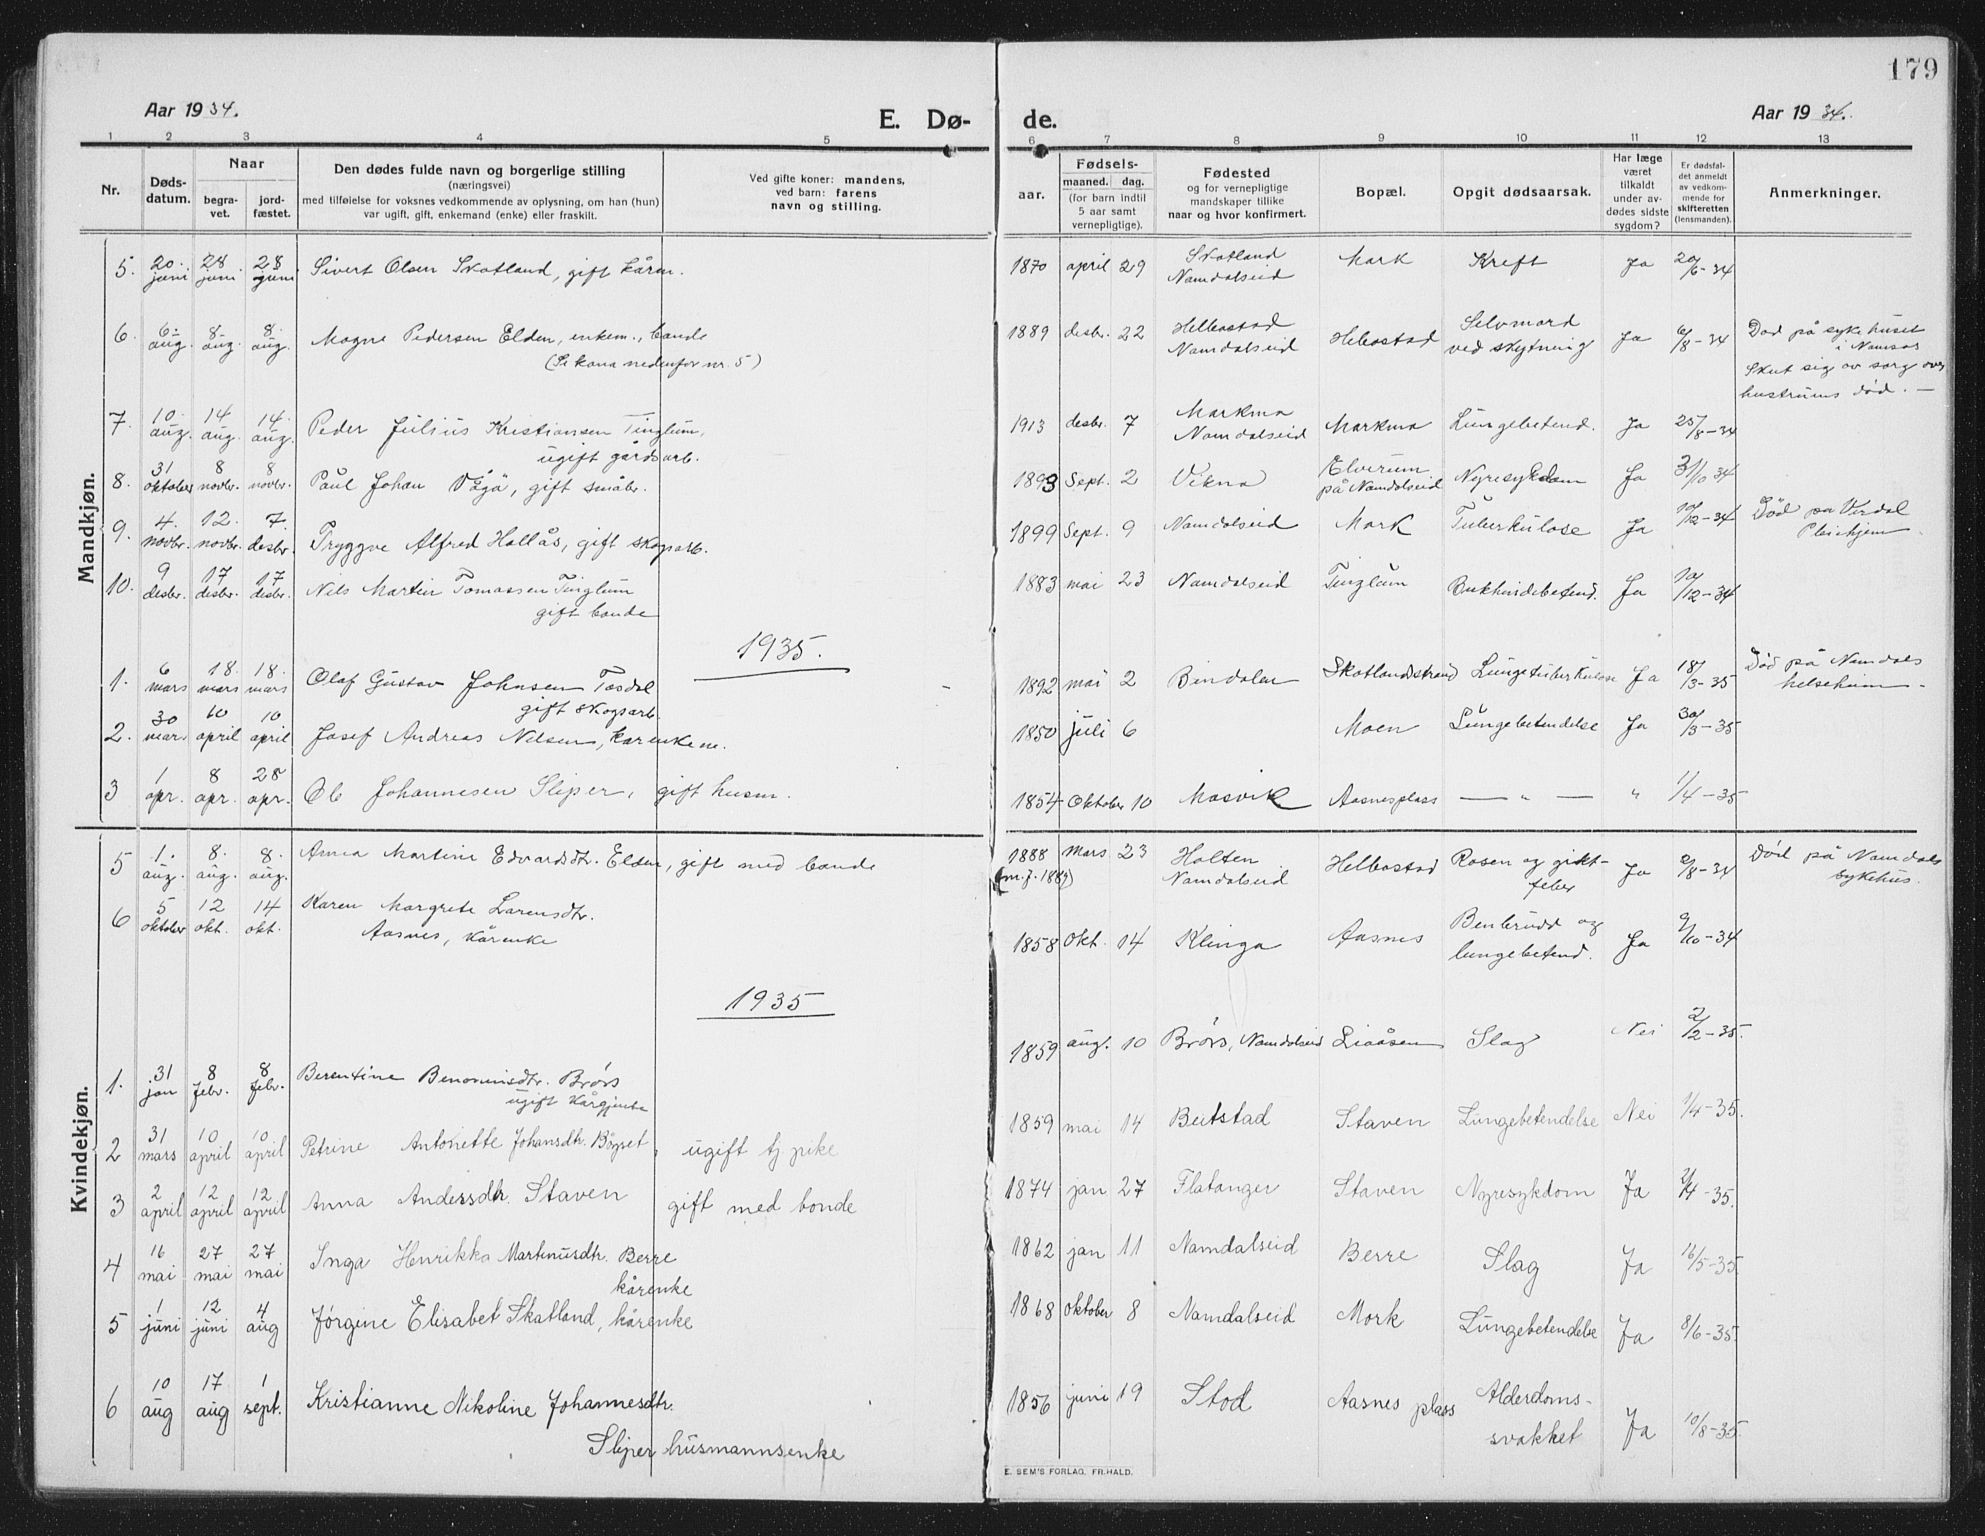 179
Aar 1934.
E. Dø-
de.
Aar 1934.
1 2 3 4 5 6 7 8 9 10 11 12 13
Nr.
Døds-
datum.
Naar
begra-
vet.
jord-
fæstet.
Den dødes fulde navn og borgerlige stilling
(næringsvei)
med tilføielse for voksnes vedkommende av oplysning, om han (hun)
var ugift, gift, enkemand (enke) eller fraskilt.
Ved gifte koner: mandens,
ved barn: farens
navn og stilling.
Fødsels-
aar.
maaned. dag.
(for barn indtil
5 aar samt
vernepligtige).
Fødested
og for vernepligtige
mandskaper tillike
naar og hvor konfirmert.
Bopæl.
Opgit dødsaarsak.
Har læge
været
tilkaldt
under av-
dødes sidste
sygdom?
Er dødsfal-
det anmeldt
av vedkom-
mende for
skifteretten
(lensmanden).
Anmerkninger.
Mandkjøn.
5. 20. juni 28. juni 28. juni Sivert Olsen Skatland, gift kårm. 1870 april 29 Skatland Namdalseid Mork Kreft Ja 20/6-34
6. 6. aug. 8. aug. 8. aug. Magne Pedersen Elden, enkem., bonde
(Se kona nedenfor nr. 5)
1889 desbr. 22 Helbostad Namdalseid Helbostad Selvmord ved skytning Ja 6/8-34 Død på sykehuset
i Namsos
Skut sig av sorg over
hustruens død. —
7. 10. aug. 14 aug. 14. aug. Peder Julius Kristiansen Tinglum,
ugift gårdsarb.
1913 desbr. 7 Markmo Namdalseid Markmo Lungebetend. Ja 25/8-34
8. 31 oktober 8 novbr. 8 novbr. Paul Johan Vågå, gift småbr. 1893 Sept. 2 Vikna Elverum på Namdalseid Nyresykdom Ja 31/10 34
9. 4. novbr. 12. novbr. 7. desbr. Tryggve Alfred Hallås, gift skogsarb. 1899 Sept. 9 Namdalseid Mork Tuberkulose Ja 10/12-34 Død på Verdal
Pleiehjem
10. 9 desbr. 17 desbr. 17 desbr. Nils Martin Tomassen Tinglum
gift bonde
1883 mai 23 Namdalseid Tinglum Bukhindebetend. Ja 10/12-34
1935.
1. 6 mars 18. mars 18. mars Olaf Gustav Johnsen Tosdal
gift skogsarb.
1892 mai 2 Bindalen Skatlandstrand Lungetuberkulose Ja 18/3-35 Død på Namdals
helseheim.
2. 30 mars 10 april 10 april Josef Andreas Nilsen, kårenkem. 1850 juli 6 Moen Lungebetendelse Ja 30/3-35
3 1 apr. 8 apr. 28 apr. Ole Johannesen Sliper, gift husm. 1854 Oktober 10 Mosvik Aasnesplass — " — " 1/4-35
Kvindekjøn.
5 1. aug. 8. aug. 8. aug. Anna Martine Edvardsdtr. Elden, gift med bonde 1888 (m.f. 1889) Mars 23 Holten Namdalseid Helbostad Rosen og giktfeber Ja 2/8-34 Død på Namdals
sykehus.
6 5 oktober 12 okt. 14 okt. Karen Margrete Larensdtr.
Aasnes, kårenke
1858 Okt. 14 Klinga Aasnes Benbrudd og lungebetend. Ja 9/10-34
1935
1. 31 jan 8 febr. 8 febr. Berentine Benoninsdtr. Brørs
ugift kårgjente
1859 aug. 10 Brørs, Namdalseid Liaåsen Slag Nei 2/2-35.
2 31 mars 10 april 10 april Petrine Antonette Johansdtr. Bøgset, ugift tj pike 1859 mai 14 Beitstad Staven Lungebetendelse Nei 1/4-35.
3 2 april 12 april 12 april Anna Andersdtr Staven gift med bonde 1874 jan 27 Flatanger Staven Nyresykdom Ja 2/4-35.
4 16 mai 27 mai 27 mai Inga Henrikka Martinusdtr. Berre
kårenke
1862 jan 11 Namdalseid Berre Slag Ja 16/5-35.
5 1 juni 12 juni 4 aug Jørgine Elisabet Skatland, kårenke 1868 oktober 8 Namdalseid Mork Lungebetendelse Ja 8/6-35.
6 10 aug 17 aug 1 sept. Kristianne Nikoline Johannesdtr.
Sliper husmannsenke
1856 juni 19 Stod Aasnes plass Alderdoms-
svakket Ja 10/8-35.
E. SEM'S FORLAG, FR.HALD.